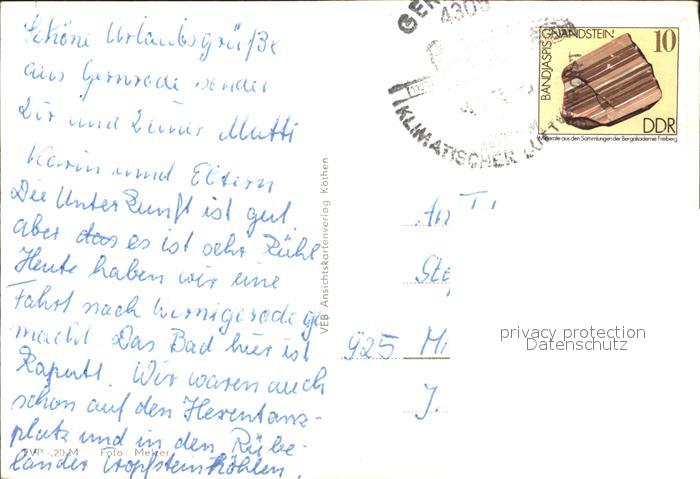 Schöne Urlaubsgrüße
aus Gernrode sendet
Dir und Deiner Mutti
Karin und Eltern
Die Unterkunft ist gut,
aber das es ist sehr kühl
Heute haben wir eine
Fahrt nach Wernigerode ge
macht. Das Bad hier ist
kaputt. Wir waren auch
schon auf den Hexentanz-
platz und in den Rübe-
länder Tropfsteinhöhlen.
EVP -,20 M Foto: Melzer
VEB Ansichtskartenverlag Köthen
GER
4305
KLIMATISCHER LUFTKURORT
BANDJASPIS GNANDSTEIN
10
DDR
Minerale aus den Sammlungen der Bergakademie Freiberg
An
925 Mi
J.
privacy protection
Datenschutz